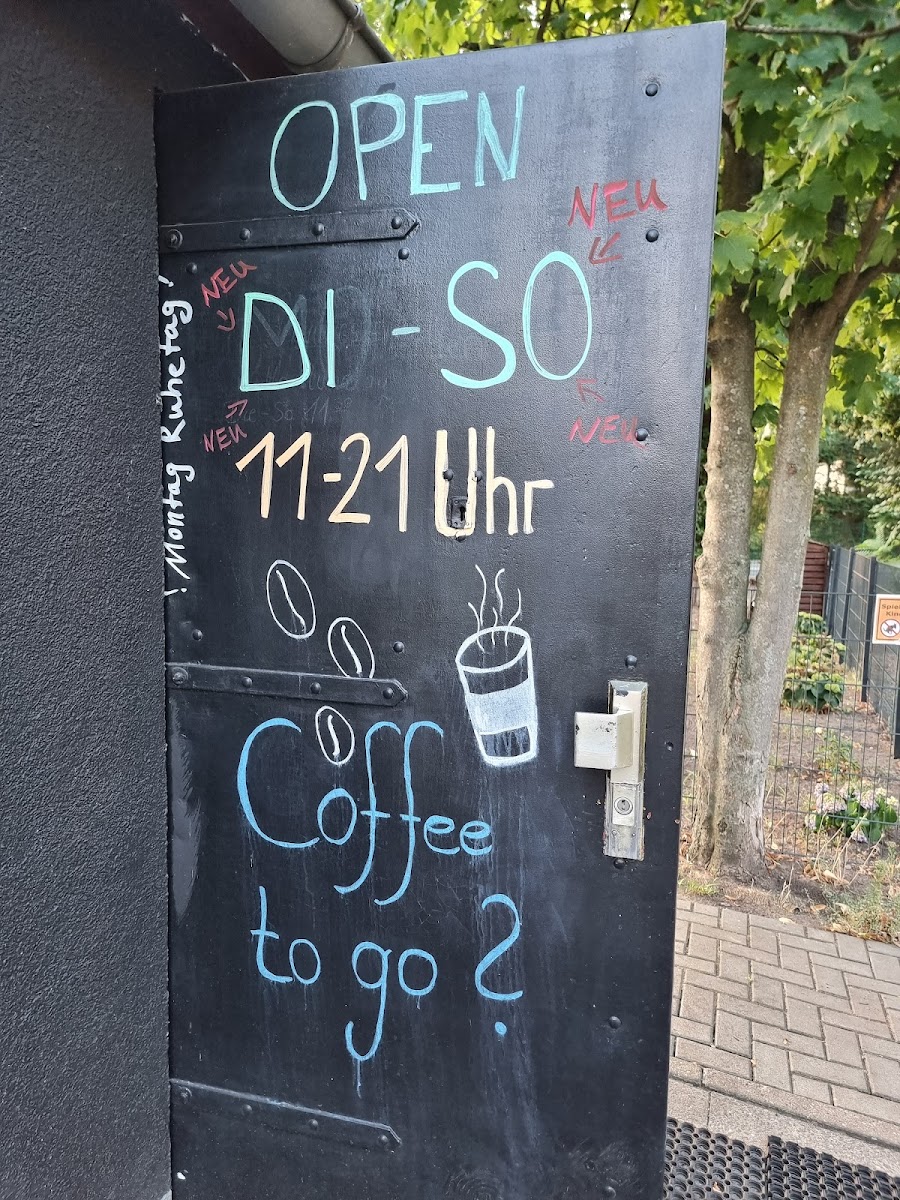 OPEN
NEU
NEU
DI - SO
NEU
NEU
11-21 Uhr
! Montag Ruhetag !
Coffee
to go ?